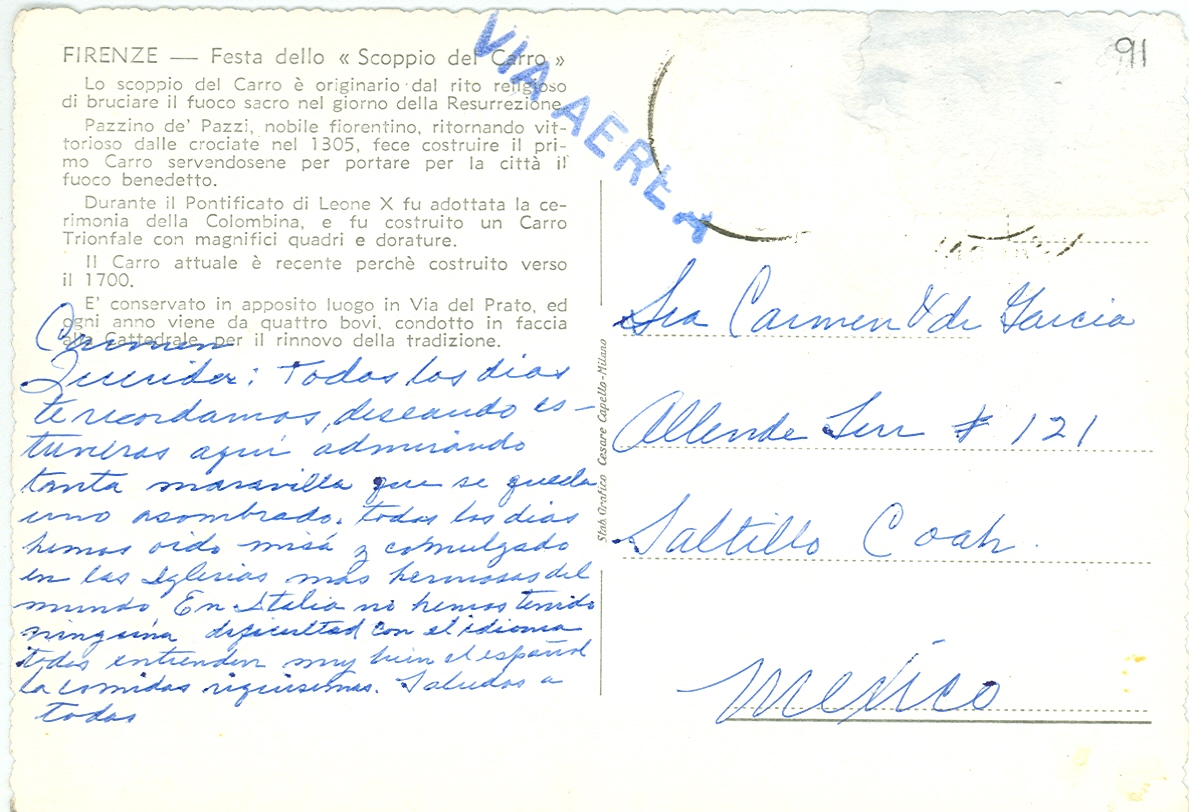 FIRENZE — Festa dello « Scoppio del Carro »
Lo scoppio del Carro è originario dal rito religioso
di bruciare il fuoco sacro nel giorno della Resurrezione.
Pazzino de' Pazzi, nobile fiorentino, ritornando vit-
torioso dalle crociate nel 1305, fece costruire il pri-
mo Carro servendosene per portare per la città il
fuoco benedetto.
Durante il Pontificato di Leone X fu adottata la ce-
rimonia della Colombina, e fu costruito un Carro
Trionfale con magnifici quadri e dorature.
Il Carro attuale è recente perchè costruito verso
il 1700.
E' conservato in apposito luogo in Via del Prato, ed
ogni anno viene da quattro bovi, condotto in faccia
alla Cattedrale per il rinnovo della tradizione.
Carmen
Querida: todos los dias
te recordamos, deseando es-
tuvieras aqui admirando
tanta maravilla que se queda
uno asombrado. todos los dias
hemos oido misa y comulgado
en las Iglesias mas hermosas del
mundo. En Italia no hemos tenido
ninguna dificultad con el idioma
todos entienden muy bien el español
la comidas riquisimas. Saludos a
todos
VIA AEREA
91
Stab. Grafico Cesare Capello-Milano
Sra Carmen V de Garcia
Allende Sur # 121
Saltillo Coah.
Mexico